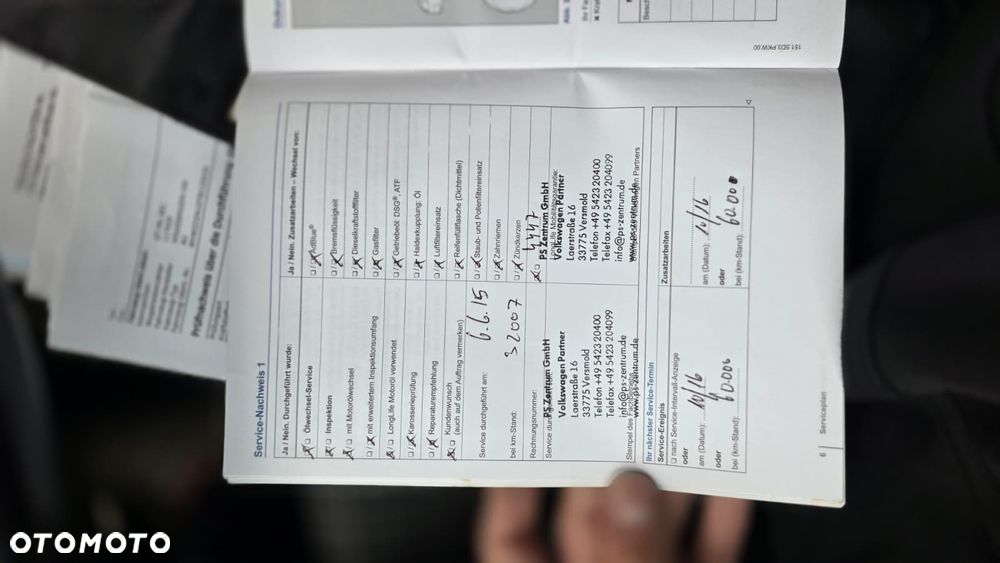 Service-Nachweis 1
Ja / Nein. Durchgeführt wurde:
Ölwechsel-Service
Inspektion
mit Motorölwechsel
mit erweitertem Inspektionsumfang
LongLife Motoröl verwendet
Karosserieprüfung
Reparaturempfehlung
Kundenwunsch
(auch auf dem Auftrag vermerken)
Service durchgeführt am: 6.6.15
bei km-Stand: 32007
Rechnungsnummer:
PS Zentrum GmbH
Volkswagen Partner
Laerstraße 16
33775 Versmold
Telefon +49 5423 20400
Telefax +49 5423 204099
info@ps-zentrum.de
www.ps-zentrum.de
Ja / Nein. Zusatzarbeiten – Wechsel von:
AdBlue®
Bremsflüssigkeit
Dieselkraftstofffilter
Gasfilter
Getriebeöl: DSG®, ATF
Haldexkupplung: Öl
Luftfiltereinsatz
Reifenfüllflasche (Dichtmittel)
Staub- und Pollenfiltereinsatz
Zahnriemen
Zündkerzen
4447
LongLife Mobilitätsgarantie:
PS Zentrum GmbH
Volkswagen Partner
Laerstraße 16
33775 Versmold
Telefon +49 5423 20400
Telefax +49 5423 204099
info@ps-zentrum.de
www.ps-zentrum.de
Ihr nächster Service-Termin
Service-Ereignis
nach Service-Intervall-Anzeige
oder
am (Datum): 10/16
oder
bei (km-Stand): 60.006
Zusatzarbeiten
am (Datum): 10/16
oder
bei (km-Stand): 60.000
6 Serviceplan
151.5D3.PKW.00
Prüfnachweis über die Durchführung
OTOMOTO